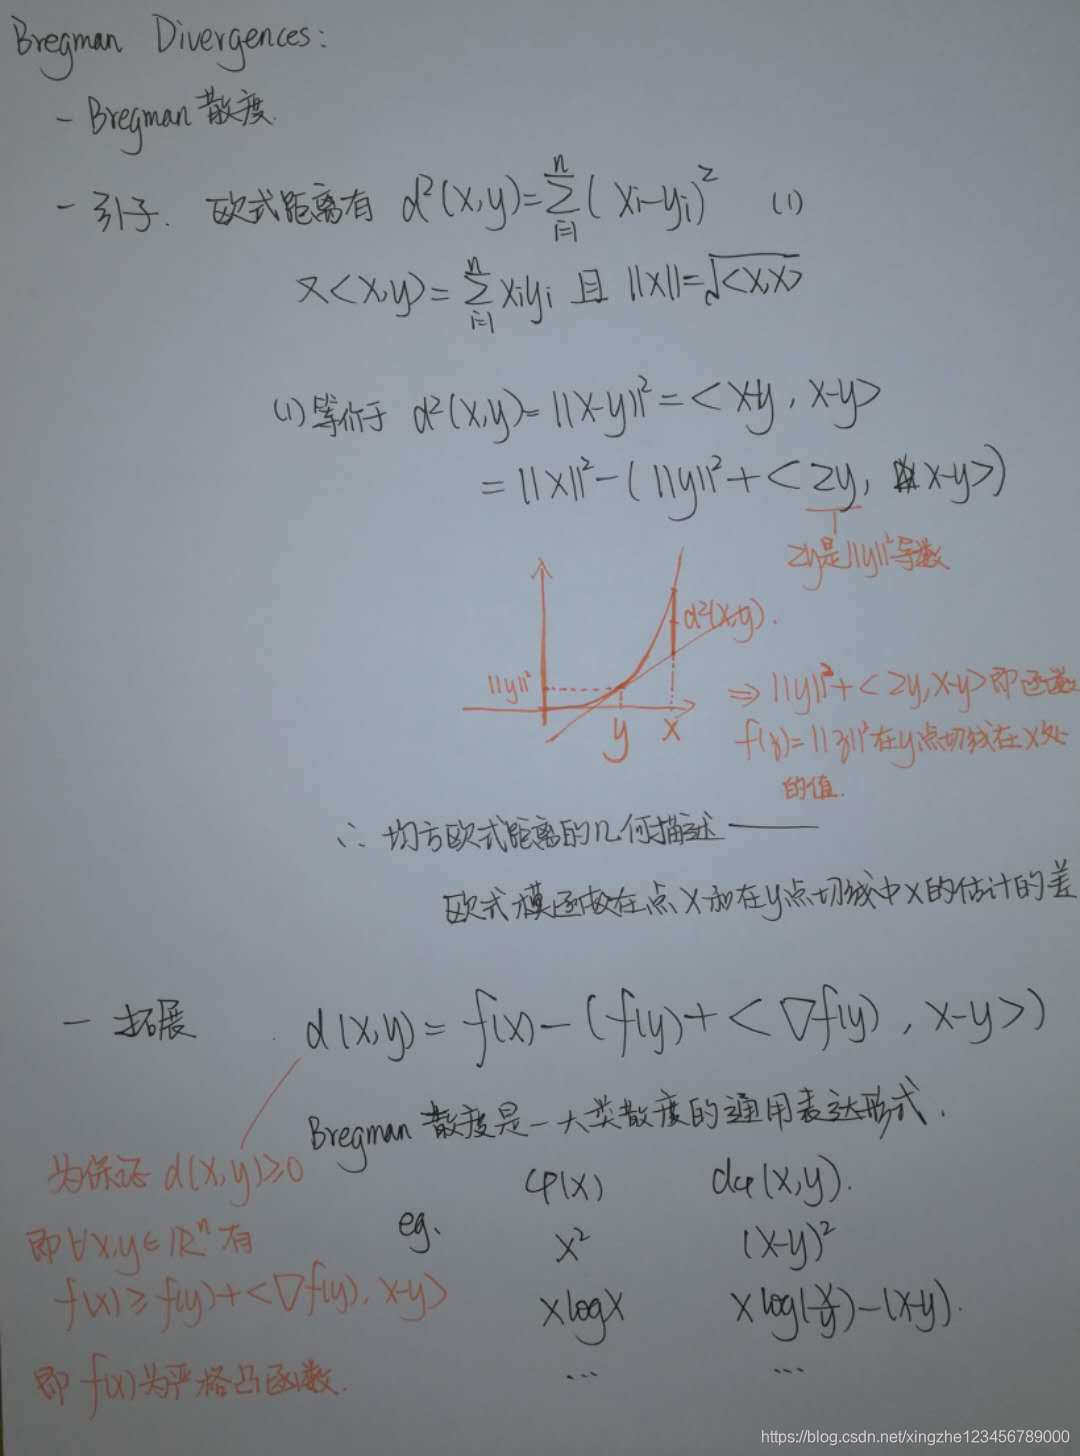 Bregman Divergences:
- Bregman 散度.
- 引子. 欧式距离有 d²(x,y)=∑ⁿᵢ₌₁(xi-yi)² (1)
又<x,y>=∑ⁿᵢ₌₁xiyi 且 ||x||=√<x,x>
(1)等价于 d²(x,y)=||x-y||²=<x-y, x-y>
=||x||²-(||y||²+<2y, x-y>)
2y是||y||²导数
d²(x,y).
||y||²
y x
⇒ ||y||²+<2y,x-y>即函数
f(z)=||z||²在y点切线在x处
的值.
∴ 均方欧式距离的几何描述——
欧式模函数在点x和在y点切线中x的估计的差
- 拓展 d(x,y)=f(x)-(f(y)+<∇f(y), x-y>)
Bregman 散度是一大类散度的通用表达形式.
为保证 d(x,y)≥0
即∀x,y∈ℝⁿ有
f(x)≥f(y)+<∇f(y), x-y>
即 f(x)为严格凸函数.
φ(x) dφ(x,y).
eg. x² (x-y)²
xlogx xlog(x/y)-(x-y).
... ...
https://blog.csdn.net/xingzhe123456789000